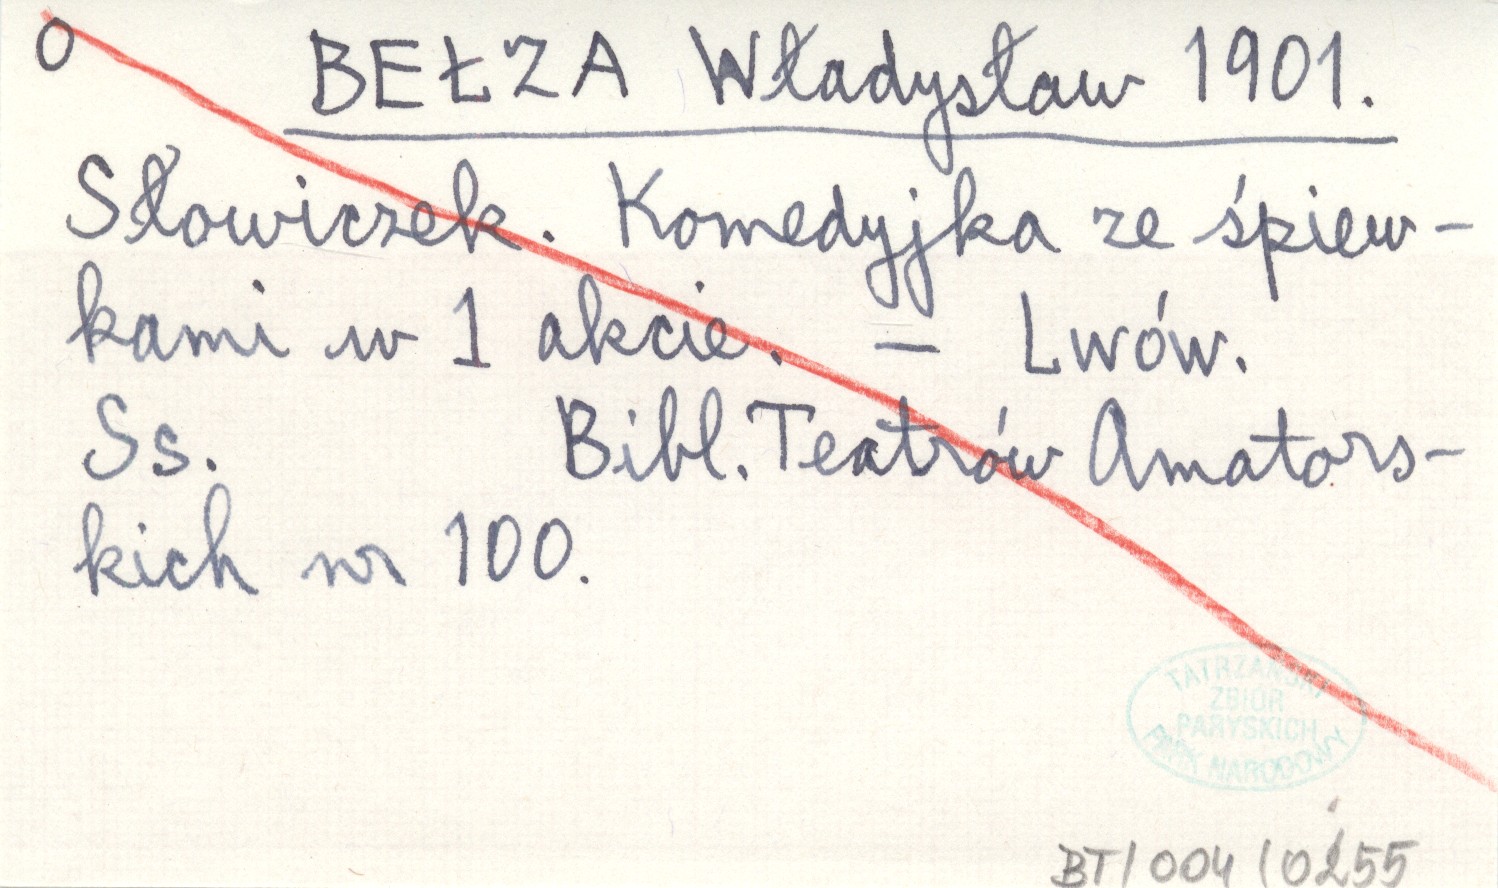 O
BEŁZA Władysław 1901.
Słowiczek. Komedyjka ze śpiew-
kami w 1 akcie. – Lwów.
Ss. Bibl. Teatrów Amators-
kich nr 100.
TATRZAŃSKI
ZBIÓR
PARYSKICH
PARK NARODOWY
BT/004/0255